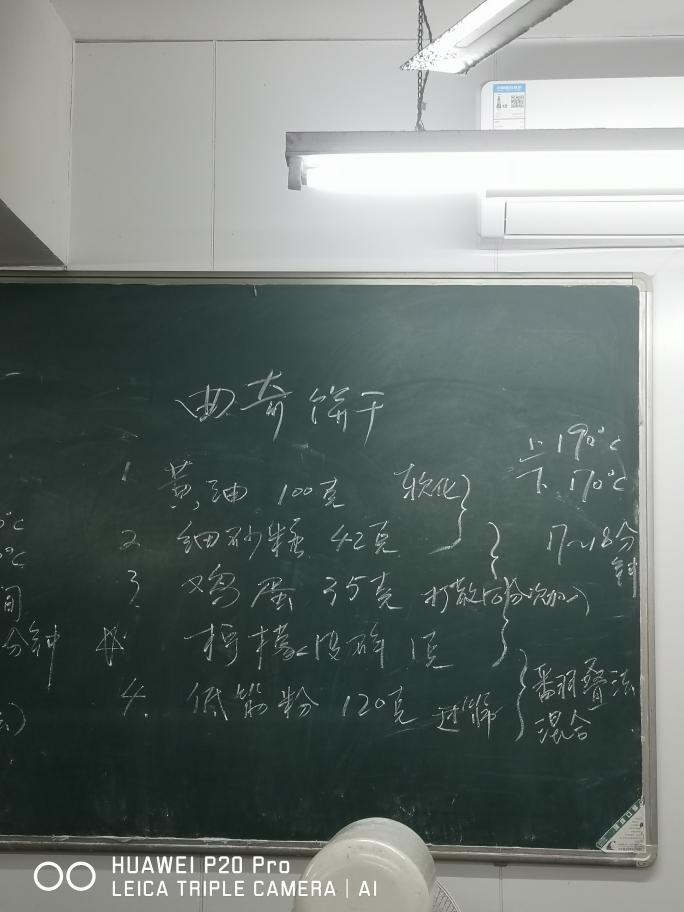 曲奇饼干
1 黄油 100克 软化
上 190℃
下 170℃
2 细砂糖 42克
17~18分
钟
3 鸡蛋 35克 打散后分次加入
柠檬皮碎
4. 低筋粉 120克 过筛
翻叠法
混合
℃
℃
间
分钟
法)
HUAWEI P20 Pro
LEICA TRIPLE CAMERA | AI